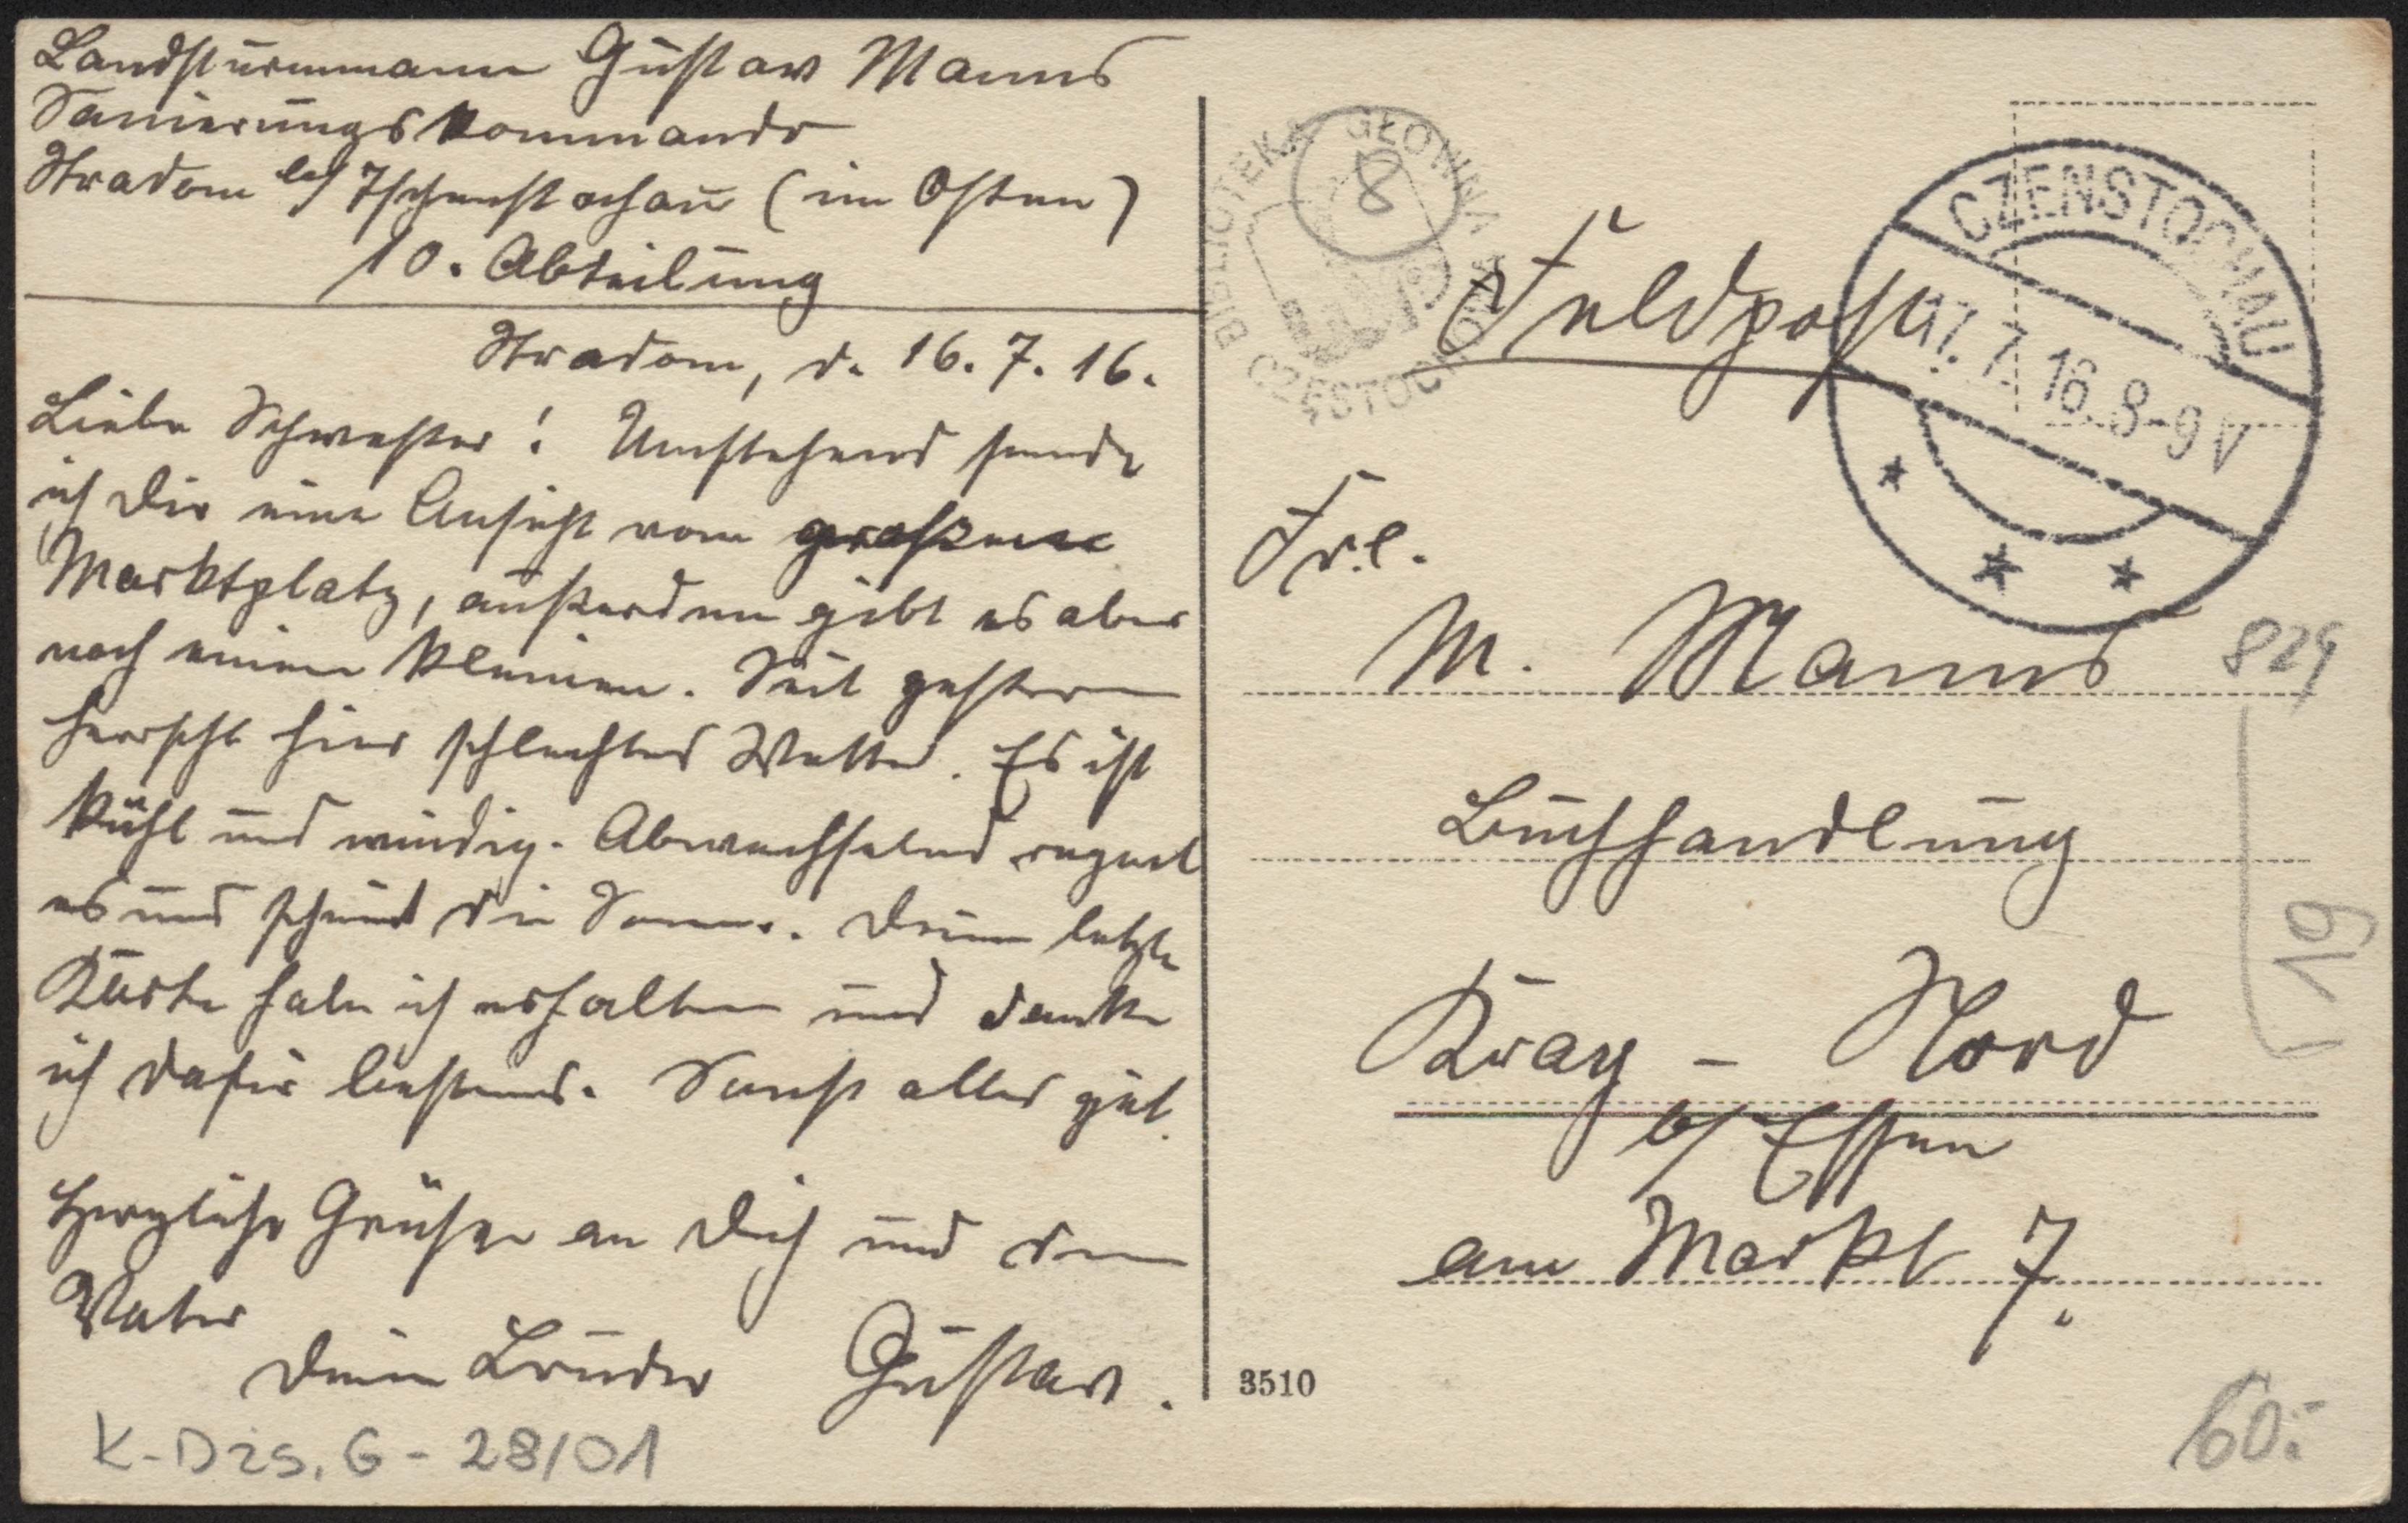 Landsturmmann Gustav Manns
Sanierungskommando
Stradom b/ Tschenstochau (im Osten)
10. Abteilung
Stradom, d. 16.7.16.
Liebe Schwester! Umstehend sende
ich Dir eine Ansicht vom großen
Marktplatz, außerdem gibt es aber
noch einen kleinen. Seit gestern
herrscht hier schlechtes Wetter. Es ist
kühl und windig. Abwechselnd regnet
es und scheint die Sonne. Deine letzte
Karte habe ich erhalten und danke
ich dafür bestens. Sonst alles gut.
Herzliche Grüße an Dich und den
Vater
Dein Bruder Gustav.
K-Dzs. G - 28/01
BIBLIOTEKA GŁÓWNA
CZĘSTOCHOWA
8
Feldpost
CZENSTOCHAU
17.7.16. 8-9V
Frl.
M. Manns
829
Buchhandlung
19
Kray - Nord
b/ Essen
am Markt 7.
3510
60.-